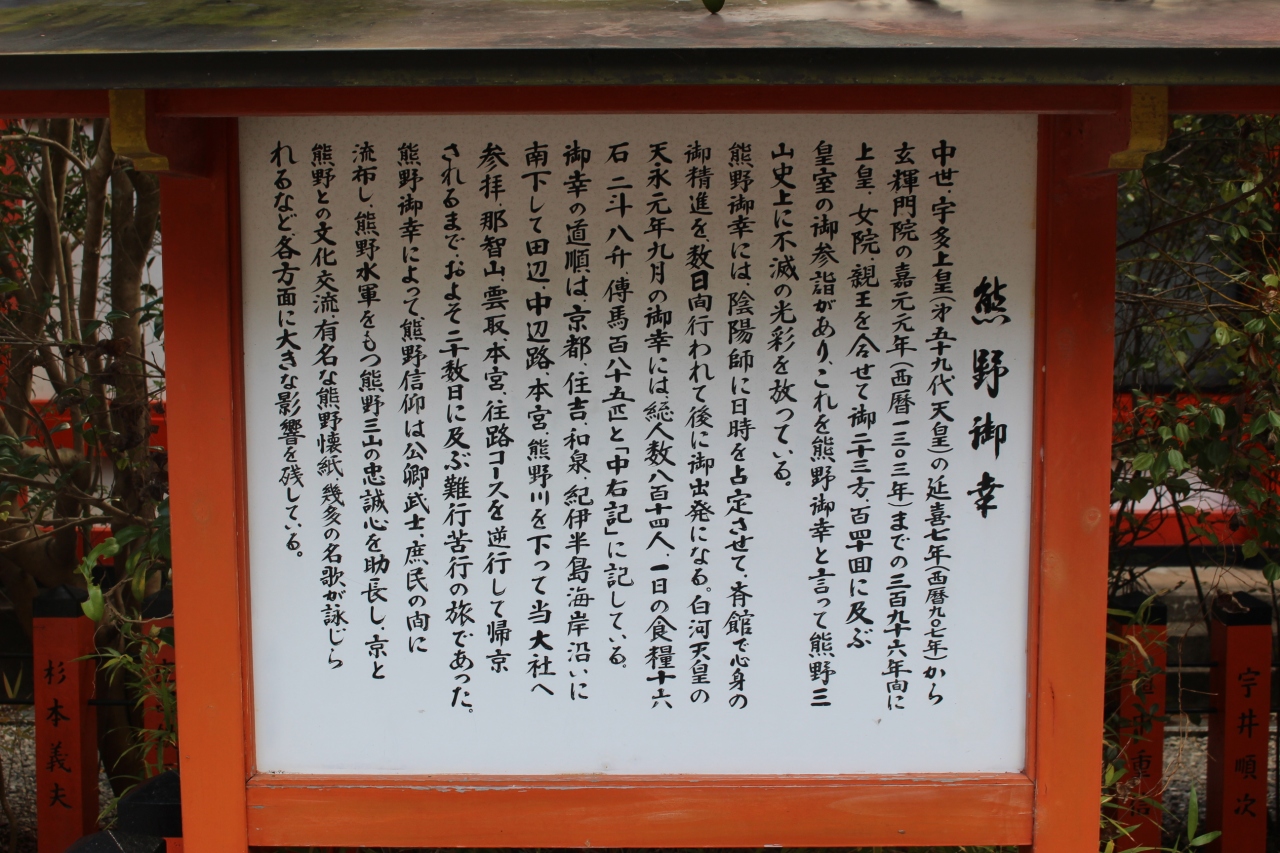 熊野御幸
中世、宇多上皇(㐧五十九代天皇)の延喜七年(西暦九〇七年)から
玄輝門院の嘉元元年(西暦一三〇三年)までの三百九十六年向に
上皇、女院、親王を合せて御二十三方、百四十面に及ぶ
皇室の御参詣があり、これを熊野御幸と言って熊野三
山史上に不滅の光彩を放っている。
熊野御幸には、陰陽師に日時を占定させて、斉館で心身の
御精進を、数日向行われて後に御出発になる。白河天皇の
天永元年九月の御幸には、総人数八百十四人、一日の食糧十六
石 二斗八升、傳馬百八十五匹と「中右記」に記している。
御幸の道順は、京都、住吉、和泉、紀伊半島海岸沿いに
南下して田辺、中辺路、本宮、熊野川を下って当大社へ
参拝、那智山、雲取、本宮、往路コースを逆行して帰京
されるまで、およそ二十数日に及ぶ難行苦行の旅であった。
熊野御幸によって、熊野信仰は公卿、武士、庶民の向に
流布し、熊野水軍をもつ熊野三山の忠誠心を助長し、京と
熊野との文化交流、有名な熊野懐紙、幾多の名歌が詠じら
れるなど各方面に大きな影響を残している。
宇井順次
杉本義夫